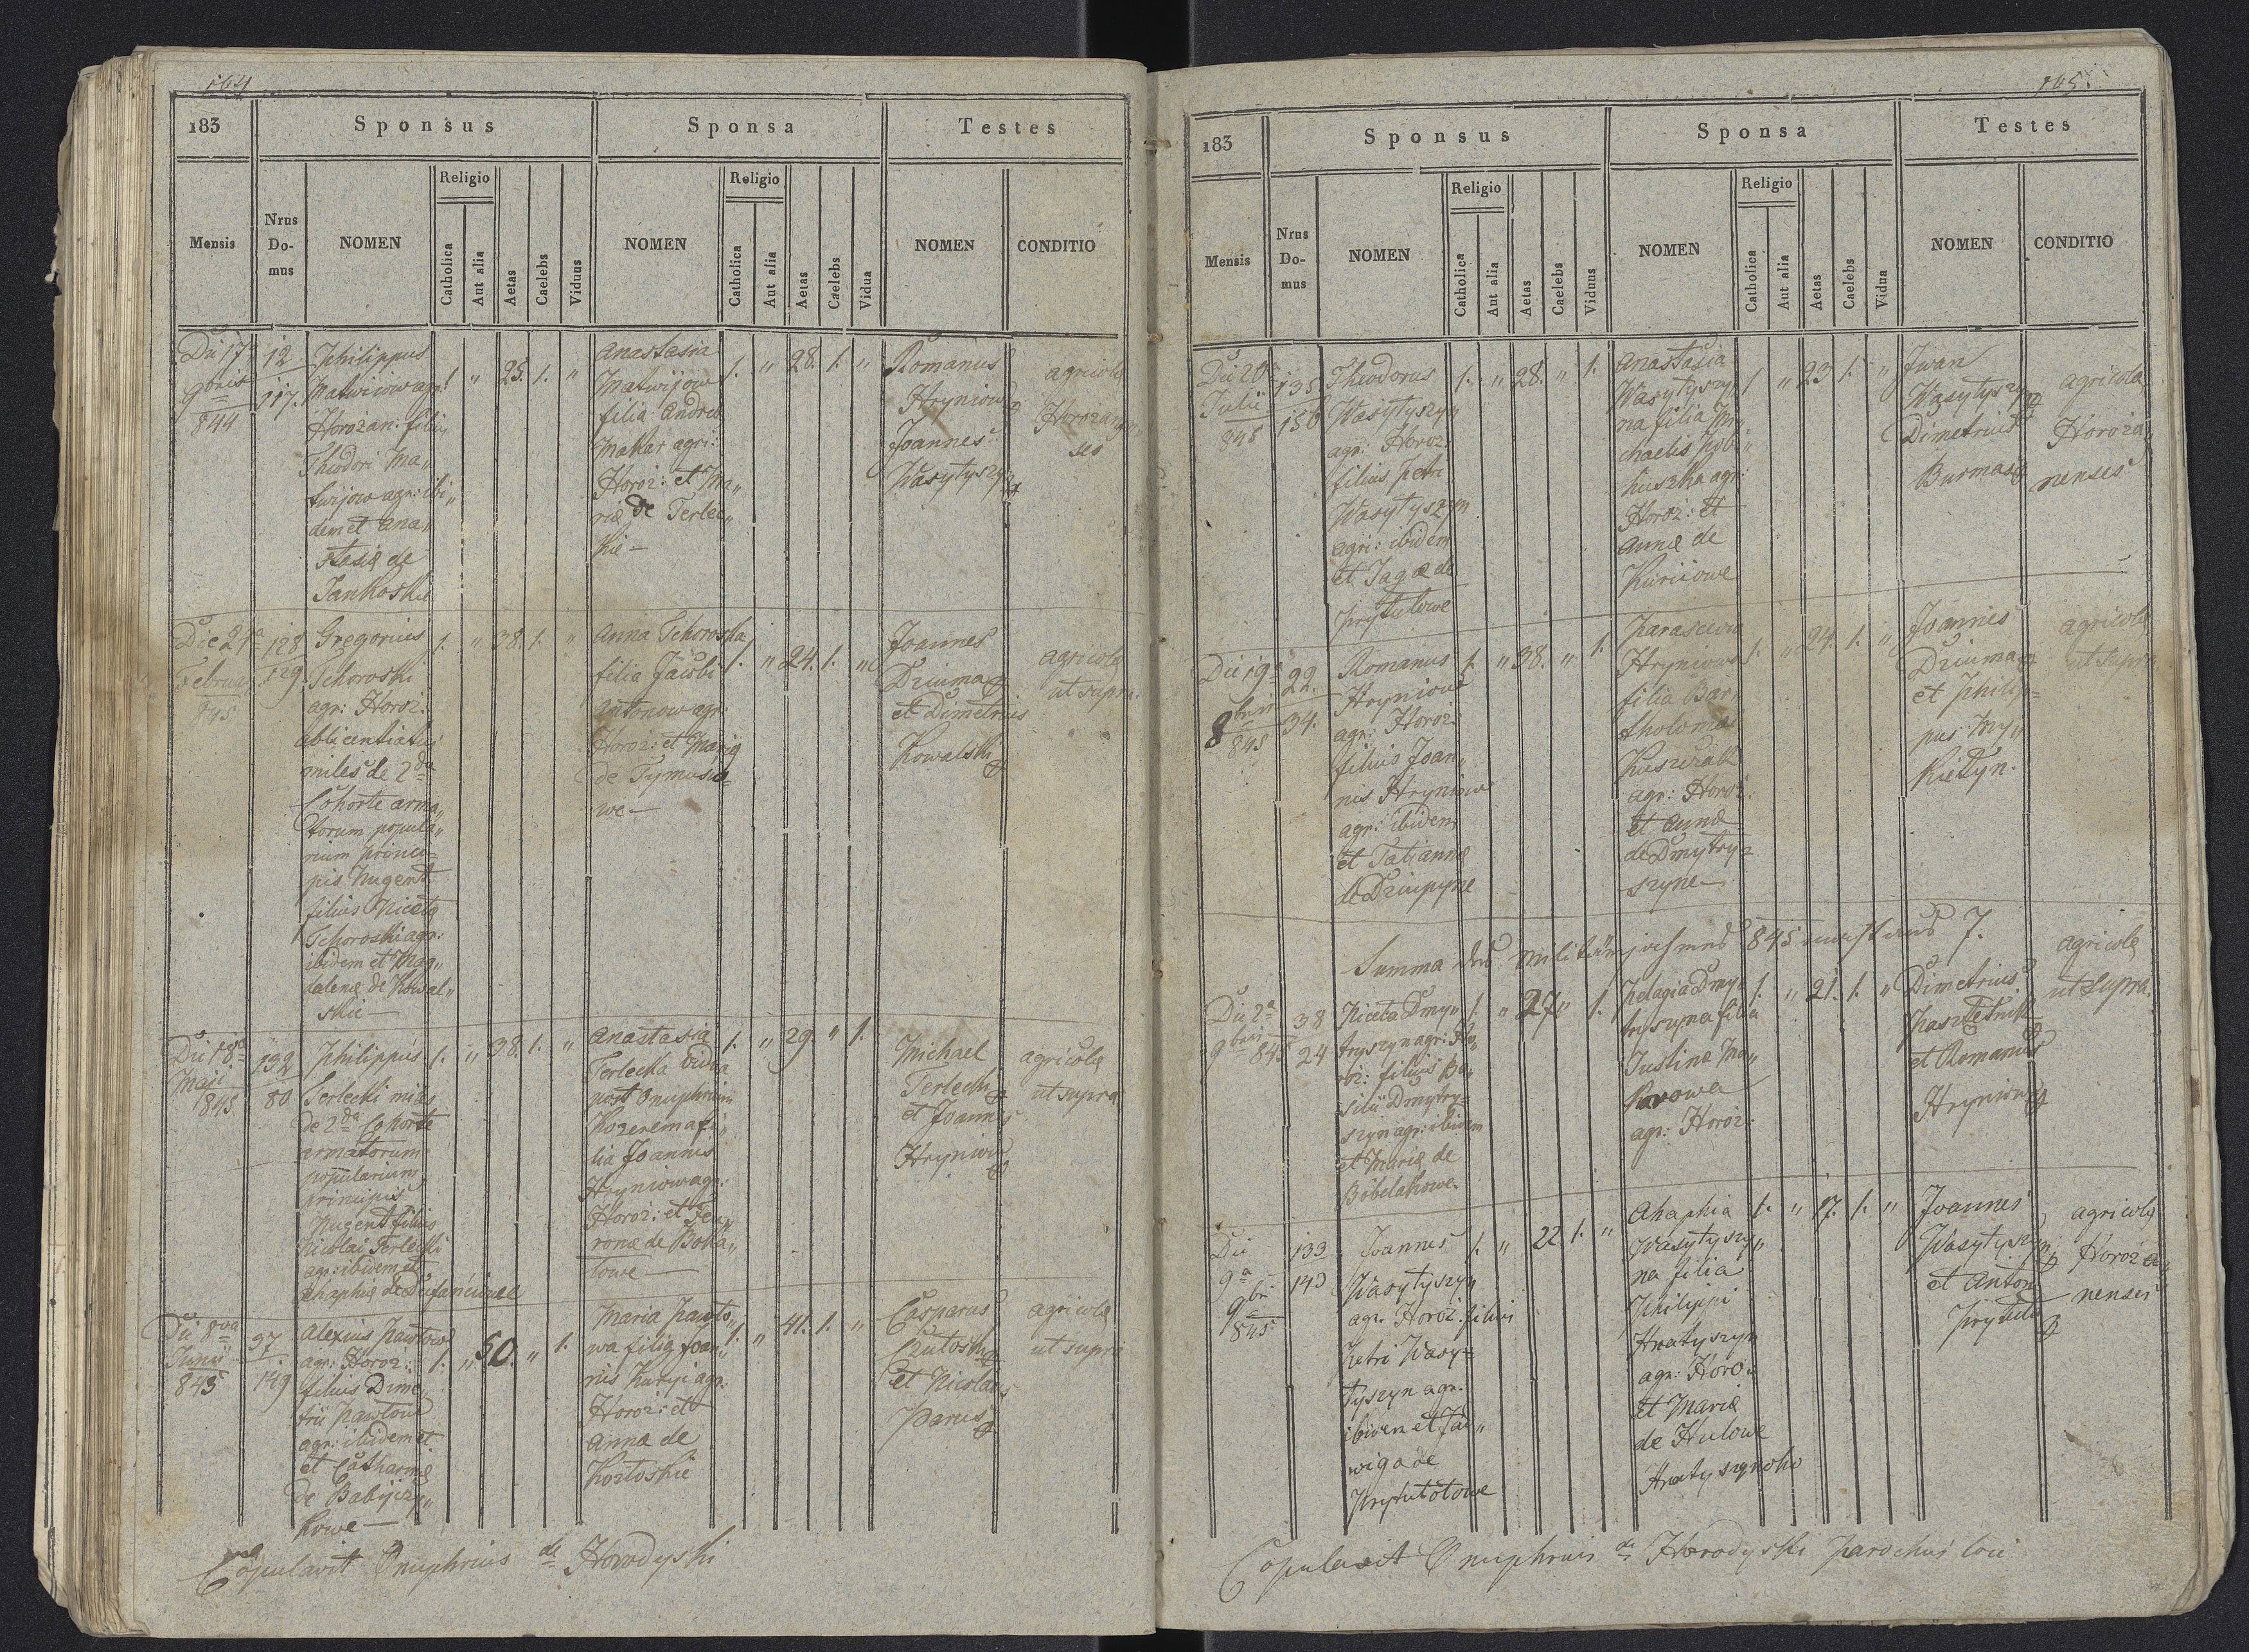 164
183
Sponsus
Sponsa
Testes
Mensis
Nrus Do- mus
NOMEN
Religio
Catholica
Aut alia
Aetas
Caelebs
Viduus
NOMEN
Religio
Catholica
Aut alia
Aetas
Caelebs
Vidua
NOMEN
CONDITIO
Die 17
9bris
844
12
117.
Philippus
Matwiiow agr:
Horożan: filius
Theodori Ma„
twijow agr: ibi„
dem et Ana„
stasiæ de
Jankoskie
1. „ 25. 1. „
Anastasia
Matwijow
filia Andreæ
Makar agri:
Horoż: et Ma„
riæ de Terlec„
kie —
1. „ 28. 1. „
Romanus
Hryniow
Joannes
Wasylyszyn
agricolæ
Horożanen„
ses
Die 21a
Februar
845
128
129
Gregorius
Tchoroski
agr: Horoż:
ablicentiatus
miles de 2da
Cohorte arma„
torum popula„
rium princi=
pis Nugent
filius Nicetæ
Tchoroski agr:
ibidem et Mag„
dalenæ de Kowal„
skie —
1. „ 38. 1. „
Anna Tchoroska
filia Jacobi
Antonow agr:
Horoż: et Mariæ
de Tymusio=
we —
1. „ 24. 1. „
Joannes
Dziuma
et Dimetrius
Kowalski
agricolæ
ut supra.
Die 18
Maji
1845
192
80
Philippus
Terlecki miles
de 2da Cohorte
armatorum
popularium
principis
Nugent filius
Nicolai Terlecki
agr: ibidem et
Ahaphiæ de
1. „ 38. 1. „
Anastasia
Terlecka vidua
post Onuphrium
Kozerema fi„
lia Joannis
Hryniow agr:
Horoż: et Fev„
roniæ de
1. „ 29. „ 1.
Michael
Terlecki
et Joannes
Hryniow
agricolæ
ut supra
Die 8va
Junii
845
97
149
Alexius Pawlow
agr: Horoż:
filius Dime„
trii Pawlow
agr: ibidem et
et Catharinæ
de Babijczu„
kowe —
1. „ 50. „ 1.
Maria Pawlo„
wa filia Joan„
nis Kuryj agr:
Horoż: et
Annæ de
Kozłoskie
1. „ 41. 1. „
Casparus
et Nicolaus
Parus
agricolæ
ut supra
Copulavit Onuphrius de Horodyski
165.
183
Sponsus
Sponsa
Testes
Mensis
Nrus Do- mus
NOMEN
Religio
Catholica
Aut alia
Aetas
Caelebs
Viduus
NOMEN
Religio
Catholica
Aut alia
Aetas
Caelebs
Vidua
NOMEN
CONDITIO
Die 20
Julii
845
135
156
Theodorus
Wasylyszyn
agr: Horoż:
filius Petri
Wasylyszyn
agri: ibidem
et Jagæ de
Prytulowe
1. „ 28. „ 1.
Anastasia
Wasylyszy„
na filia Mi„
chaelis
agr:
Horoż: et
Annæ de
Kuriiowe
1 „ 23 1. „
Iwan
Wasylyszyn
Dimetrius
Burmas
agricolæ
Horoża„
nenses
Die 19a
8bris
845
22.
34.
Romanus
Hryniow
agr: Horoż:
filius Joan„
nis Hryniow
agr: ibidem
et Tatiannæ
de Dziupyne
1. „ 38. „ 1.
Parascewia
Hryniowa
filia Bar„
tholomæi
agr: Horoż:
et Annæ
de Dmytry=
szyne —
1. „ 24. 1. „
Joannes
Dziuma
et Philip=
pus My„
kietyn.
agricolæ
ut supra
Summa des Militärjahres 845 7.
Die 2a
9bris 845
38
24
Niceta Dmy„
tryszyn agr: Ho„
roż: filius Ba„
silii Dmytry=
szyn agr: ibidem
et Mariæ de
Bobelakowe.
1. „ 27 „ 1.
Pelagia Dmy„
tryszyna filia
Justinæ Ma„
karowa
agr: Horoż:
1. „ 21. 1. „
Dimetrius
Pasztetnik
et Romanus
Hryniow
agricolæ
ut supra.
Die
9a
9br.
845
133
143
Joannes
Wasylyszyn
agr. Horoż: filius
Petri Wasy=
lyszyn agr.
ibidem et Jad„
wiga de
Prytulolowe
1. „ 22. 1. „
Ahaphia
Wasylyszy„
na filia
Philippi
Hnatyszyn
agr: Horoż
et Mariæ
de Hulowe
1. „ 17. 1. „
Joannes
Wasylyszyn
et Anton
Prytula
agricolæ
Horoża„
nenses
Copulavit Onuphrius de Horodyski Parochus loci